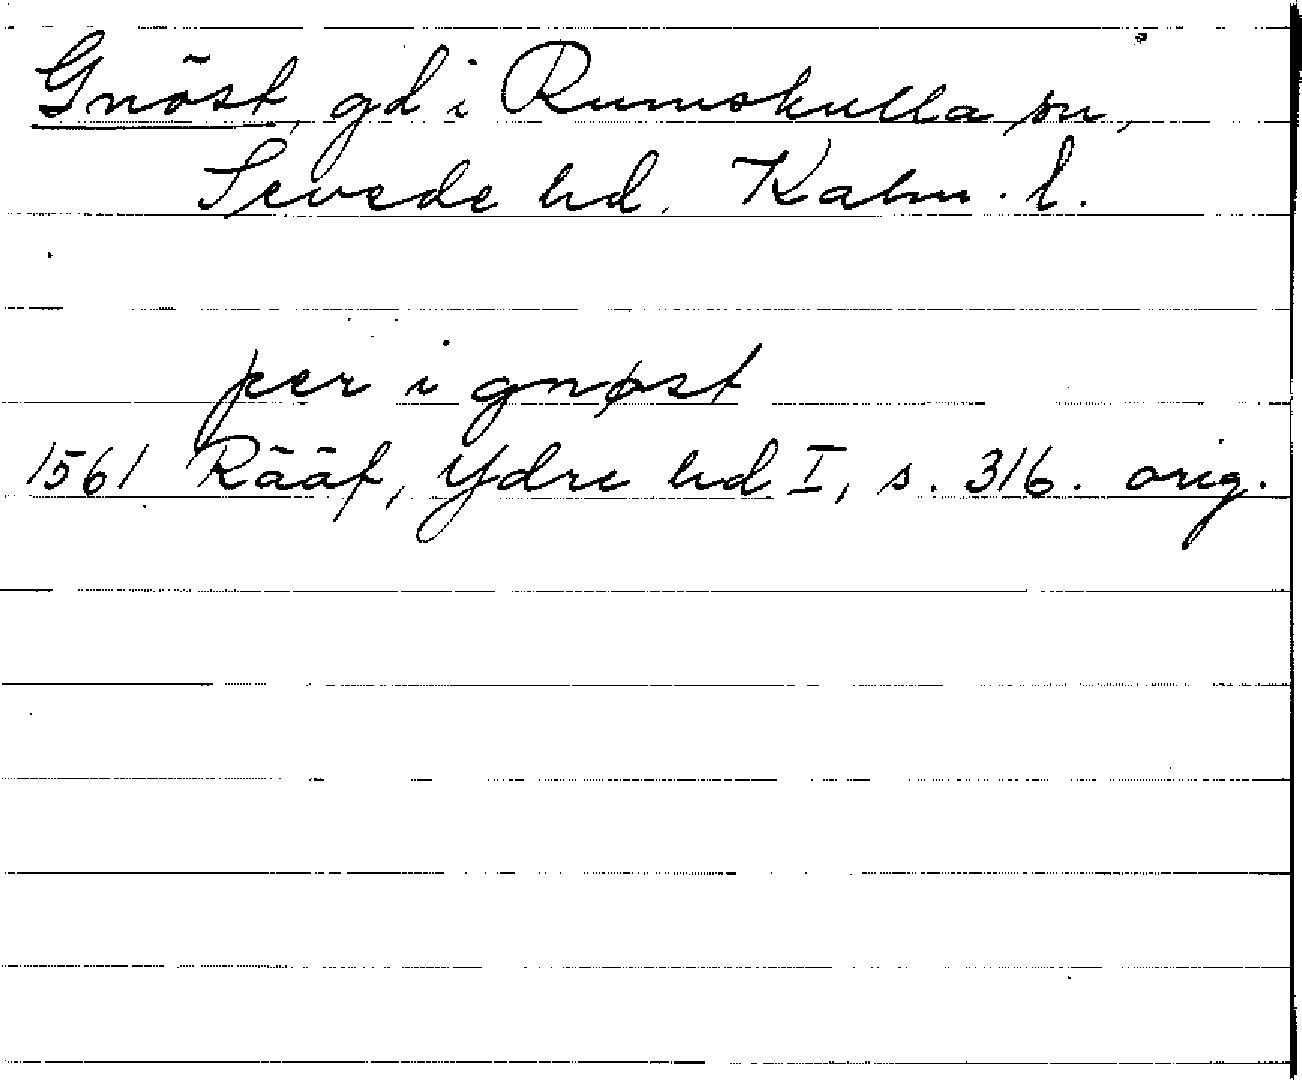 Gnöst, gd i Rumskulla sn,
Sevede hd. Kalm. l.
per i gnøst
1561 Rääf, Ydre hd I, s. 316. orig.